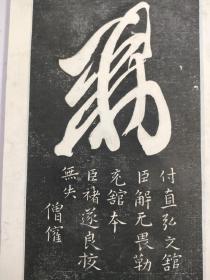 付直弘文舘
臣解无畏勒
充舘本
臣褚遂良挍
無失
僧權